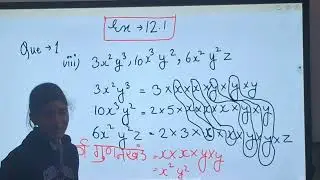 Ex → 12.1
Que → 1
viii) 3x²y³, 10x³y², 6x²y²z
3x²y³ = 3 × x × x × y × y × y
10x³y² = 2 × 5 × x × x × x × y × y
6x²y²z = 2 × 3 × x × x × y × y × z
गुणनखंड = x × x × y × y
= x²y²